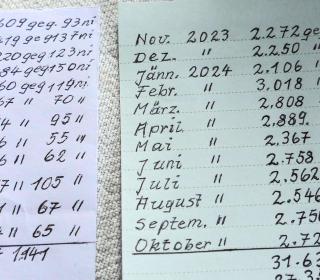 609 geg. 93 ni
419 geg 137 ni
220 geg 123 ni
84 geg 150 ni
60 geg 119 ni
67 " 70 "
95 "
55 "
62 "
" 105 "
" 67 "
" 65 "
1.941
Nov. 2023 2.272 ge
Dez. " 2.250 "
Jänn. 2024 2.106 "
Febr. " 3.018 "
März. " 2.808
April " 2.889.
Mai " 2.367
Juni " 2.758
Juli " 2.562
August " 2.546
Septem. " 2.750
Oktober " 2.72
31.63